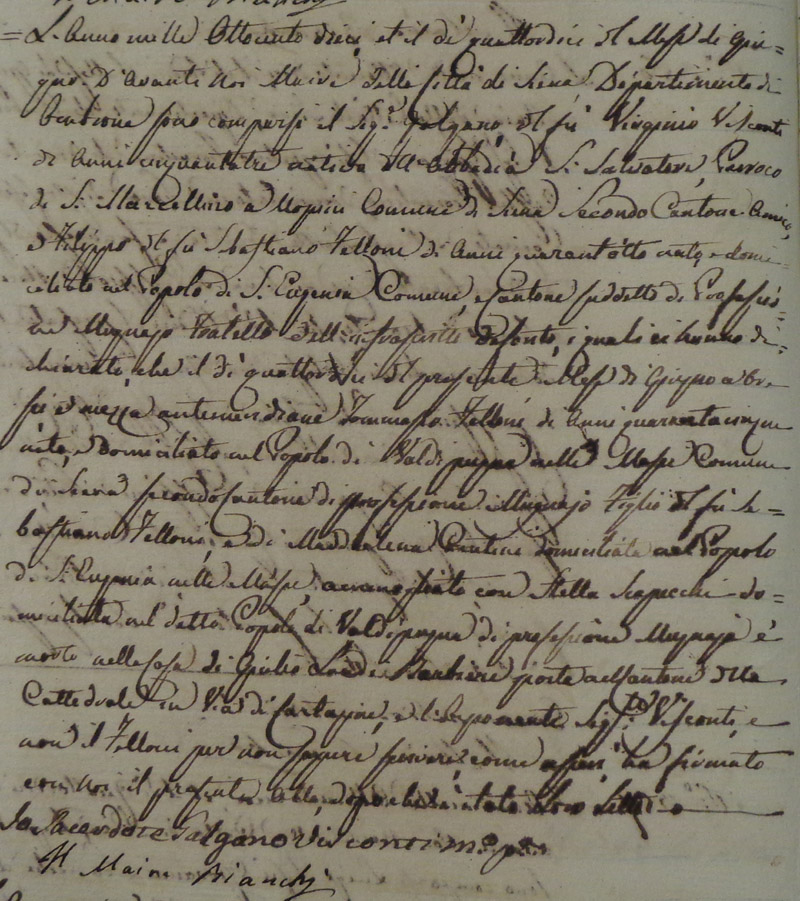 = L'Anno mille Ottocento dieci, et il dì quattordici del Mese di Giu=
gno. D'avanti Noi Maire della Città di Siena Dipartimento di
sono comparsi il Sig.r Galgano del fù Virginio Visconti
di Anni cinquantatre nativo dell' Abbadia S. Salvatore, Parroco
di S. Marcellino a Comune di Siena Secondo Cantone Amico,
e Filippo del fù Sebastiano Felloni di Anni quarantotto nato, e domi=
ciliato nel Popolo di S. Eugenia Comune, e Cantone suddetto di Professio=
ne Mugnajo Fratello dell' infrascritto defonto, i quali ci hanno di=
chiarato, che il dì quattordici del presente Mese di Giugno a Ore
sei e mezza antemeridiane Tommaso Felloni di Anni quarantacinque
nato, e Domiciliato nel Popolo di Valdipugna nelle Masse Comune
di Siena secondo Cantone di professione Mugnajo Figlio del fù Se=
bastiano Felloni, e di Maddalena Cantini domiciliata nel Popolo
di S. Eugenia nelle Masse, con Stella Scapecchi do=
miciliata nel detto Popolo di Valdipugna di professione Mugnaja è
morto nella Casa di Giulio Barbieri posta nel Cantone della
Cattedrale in Via di e l'Esponente Sig.r Visconti, e
non il Felloni per non sapere scrivere, come ha firmato
con Noi il presente Atto, dopo che li è stato Loro letto
Io Sacerdote Galgano Visconti m.o p.a
Il Maire Bianchi